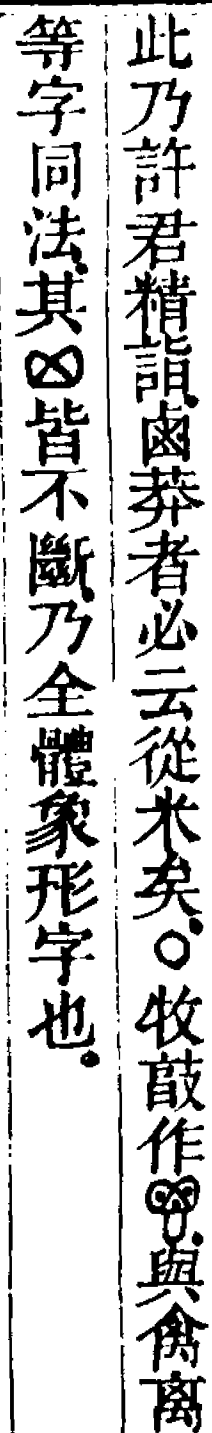 此乃許君精詣鹵莽者必云從米矣○牧敦作與禽离
等字同法其皆不斷乃全體象形字也